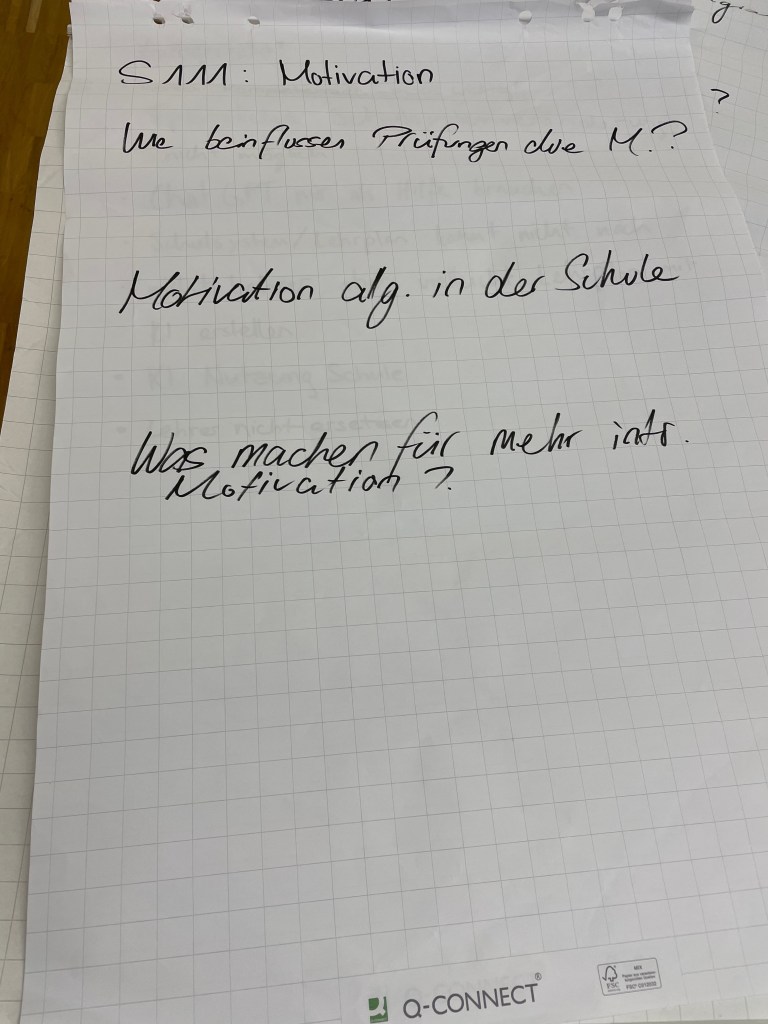 S111: Motivation
Wie beinflussen Prüfungen die M.?
Motivation alg. in der Schule
Was machen für mehr intr.
Motivation?
?
Q-CONNECT®
FSC
MIX